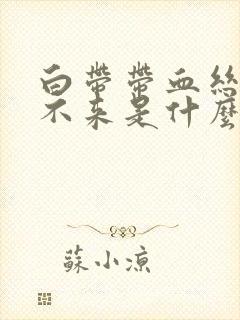 白帶帶血絲
不來是什麼
蘇小涼